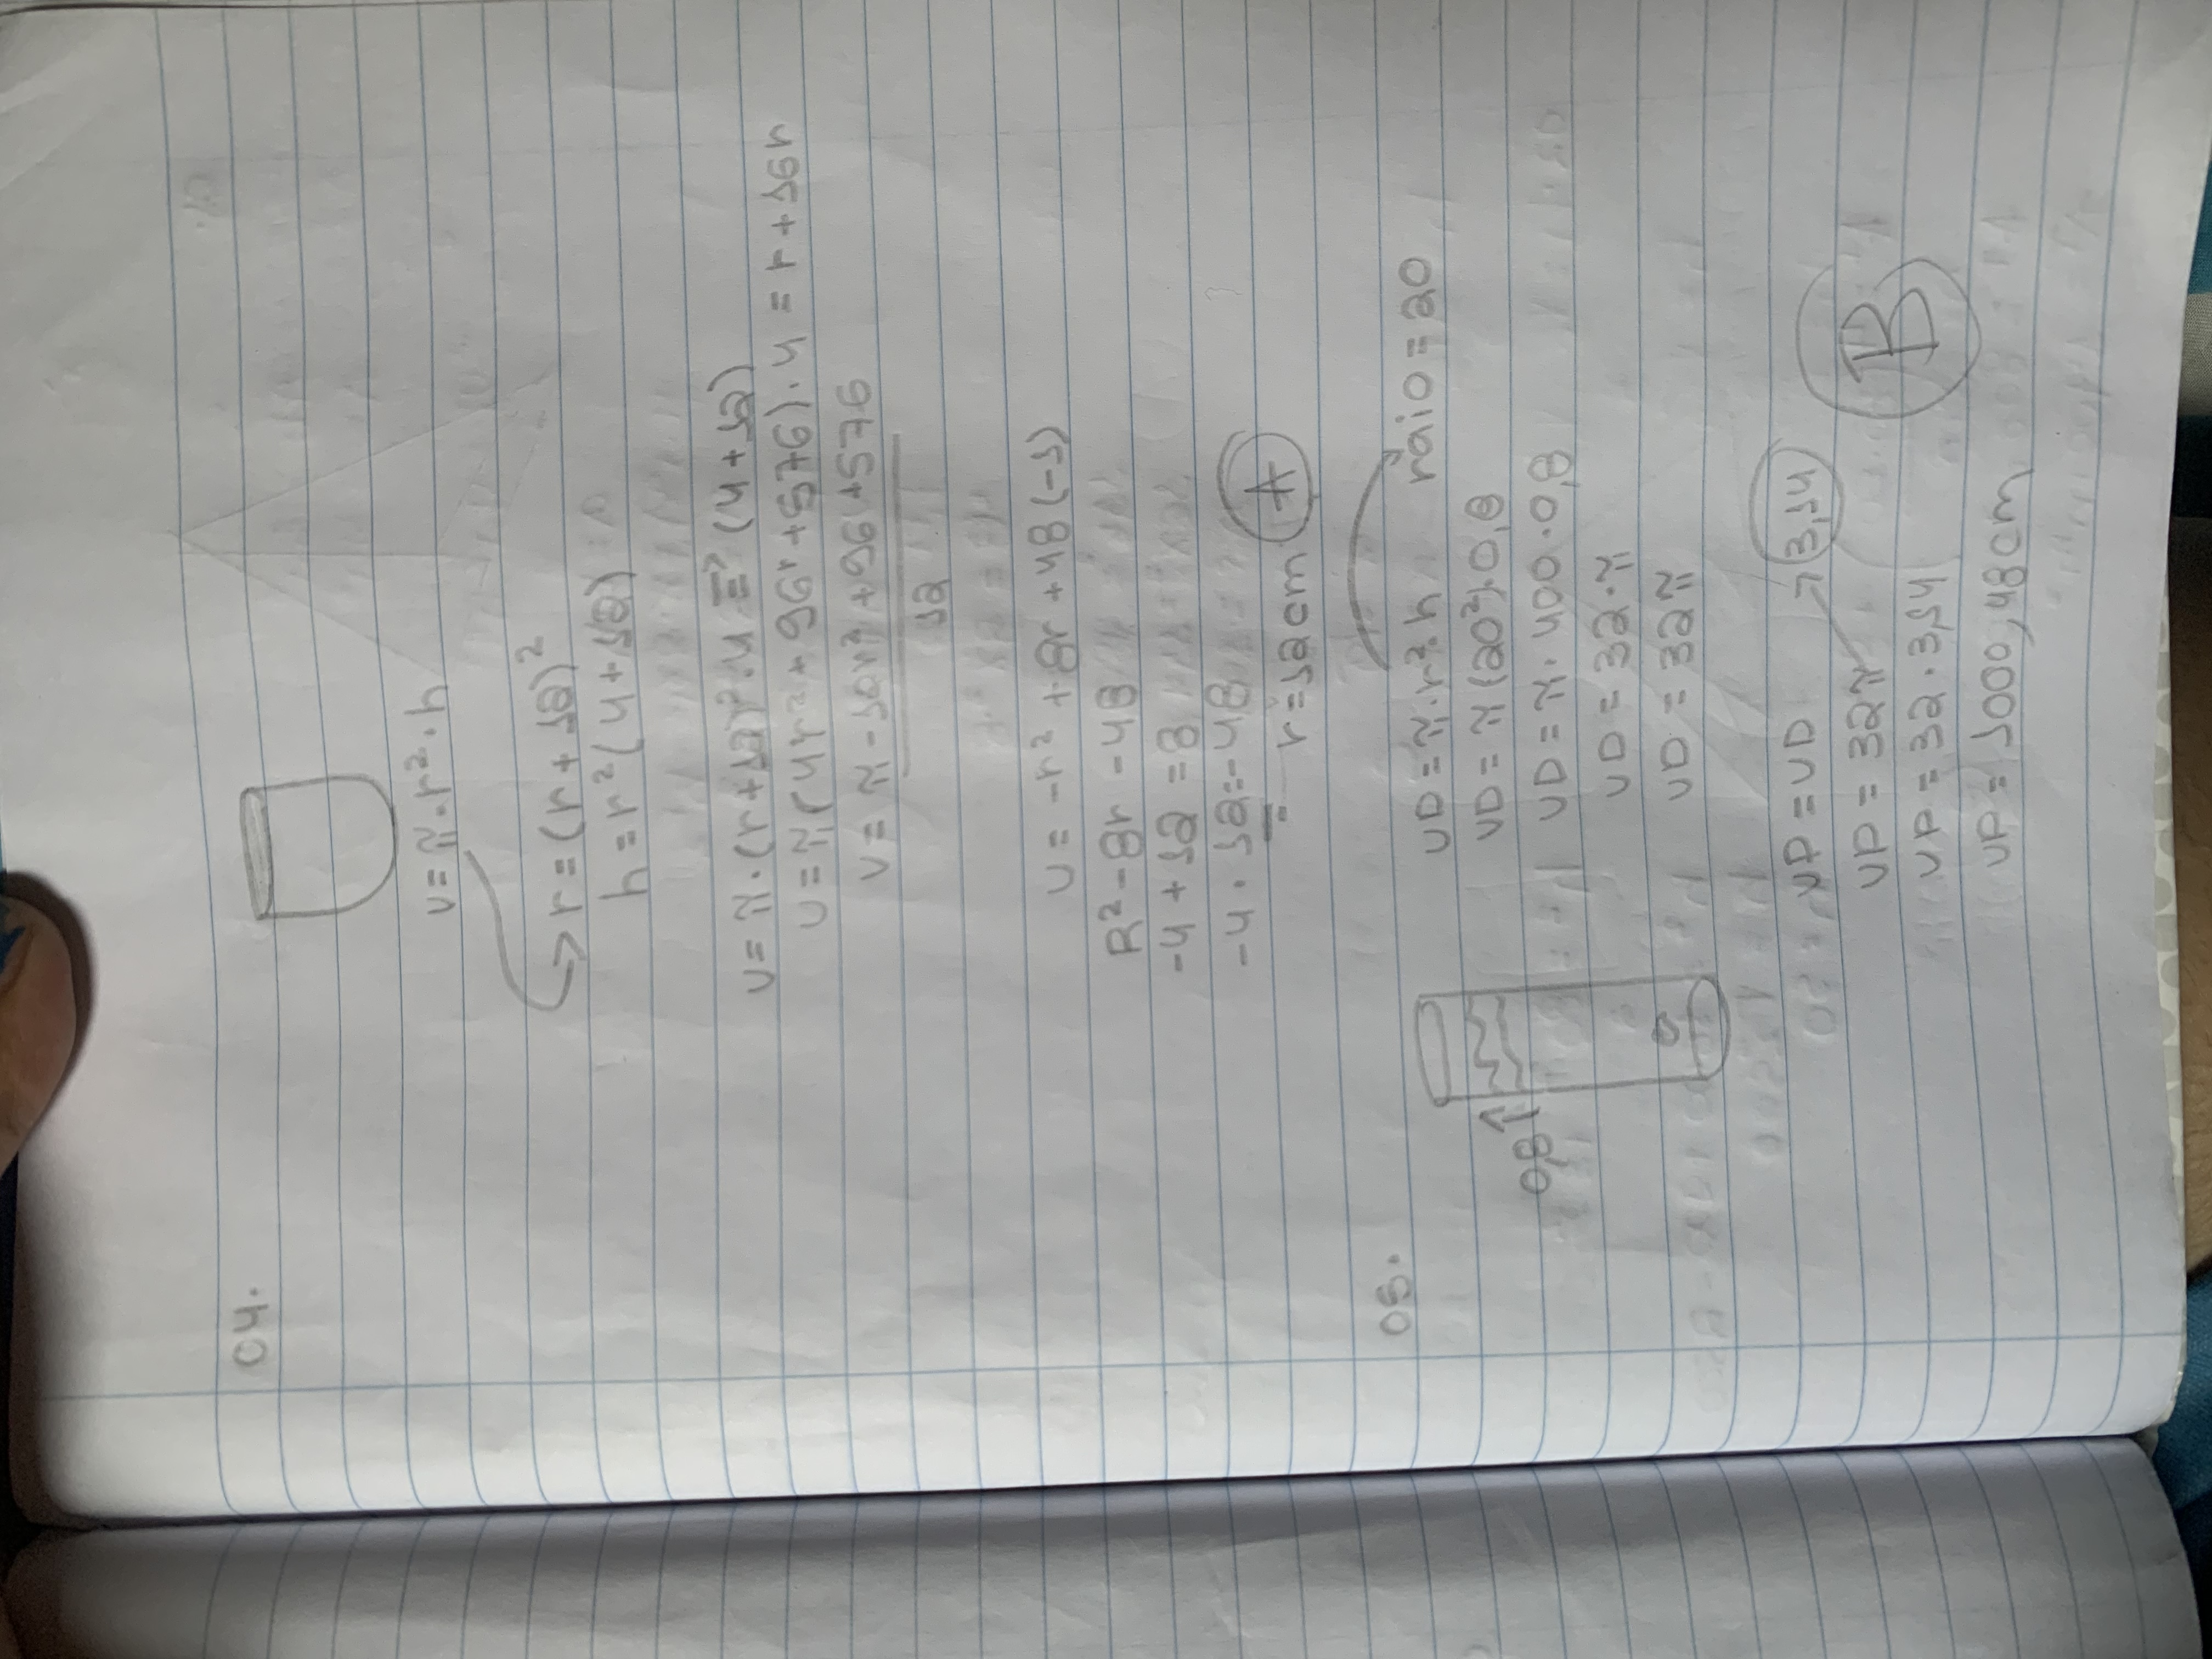 04.
v = π · r² · h
r = (r + 12)²
h = r² (4 + 12)
v = π · (r + 12)² · 4 => (4 + 12)
v = π (4r² + 96r + 576) · 4 = r + 16r
v = π - 10r² + 96 + 576
12
v = -r² + 8r + 48 (-1)
R² - 8r - 48
-4 + 12 = 8
-4 · 12 = -48
r = 12cm A
05.
VD = π · r² · h raio = 20
0,8
VD = π (20²) · 0,8
VD = π · 400 · 0,8
VD = 32 · π
VD = 32π
VP = VD 3,14
VP = 32π
B
VP = 32 · 3,14
VP = 1000,48cm